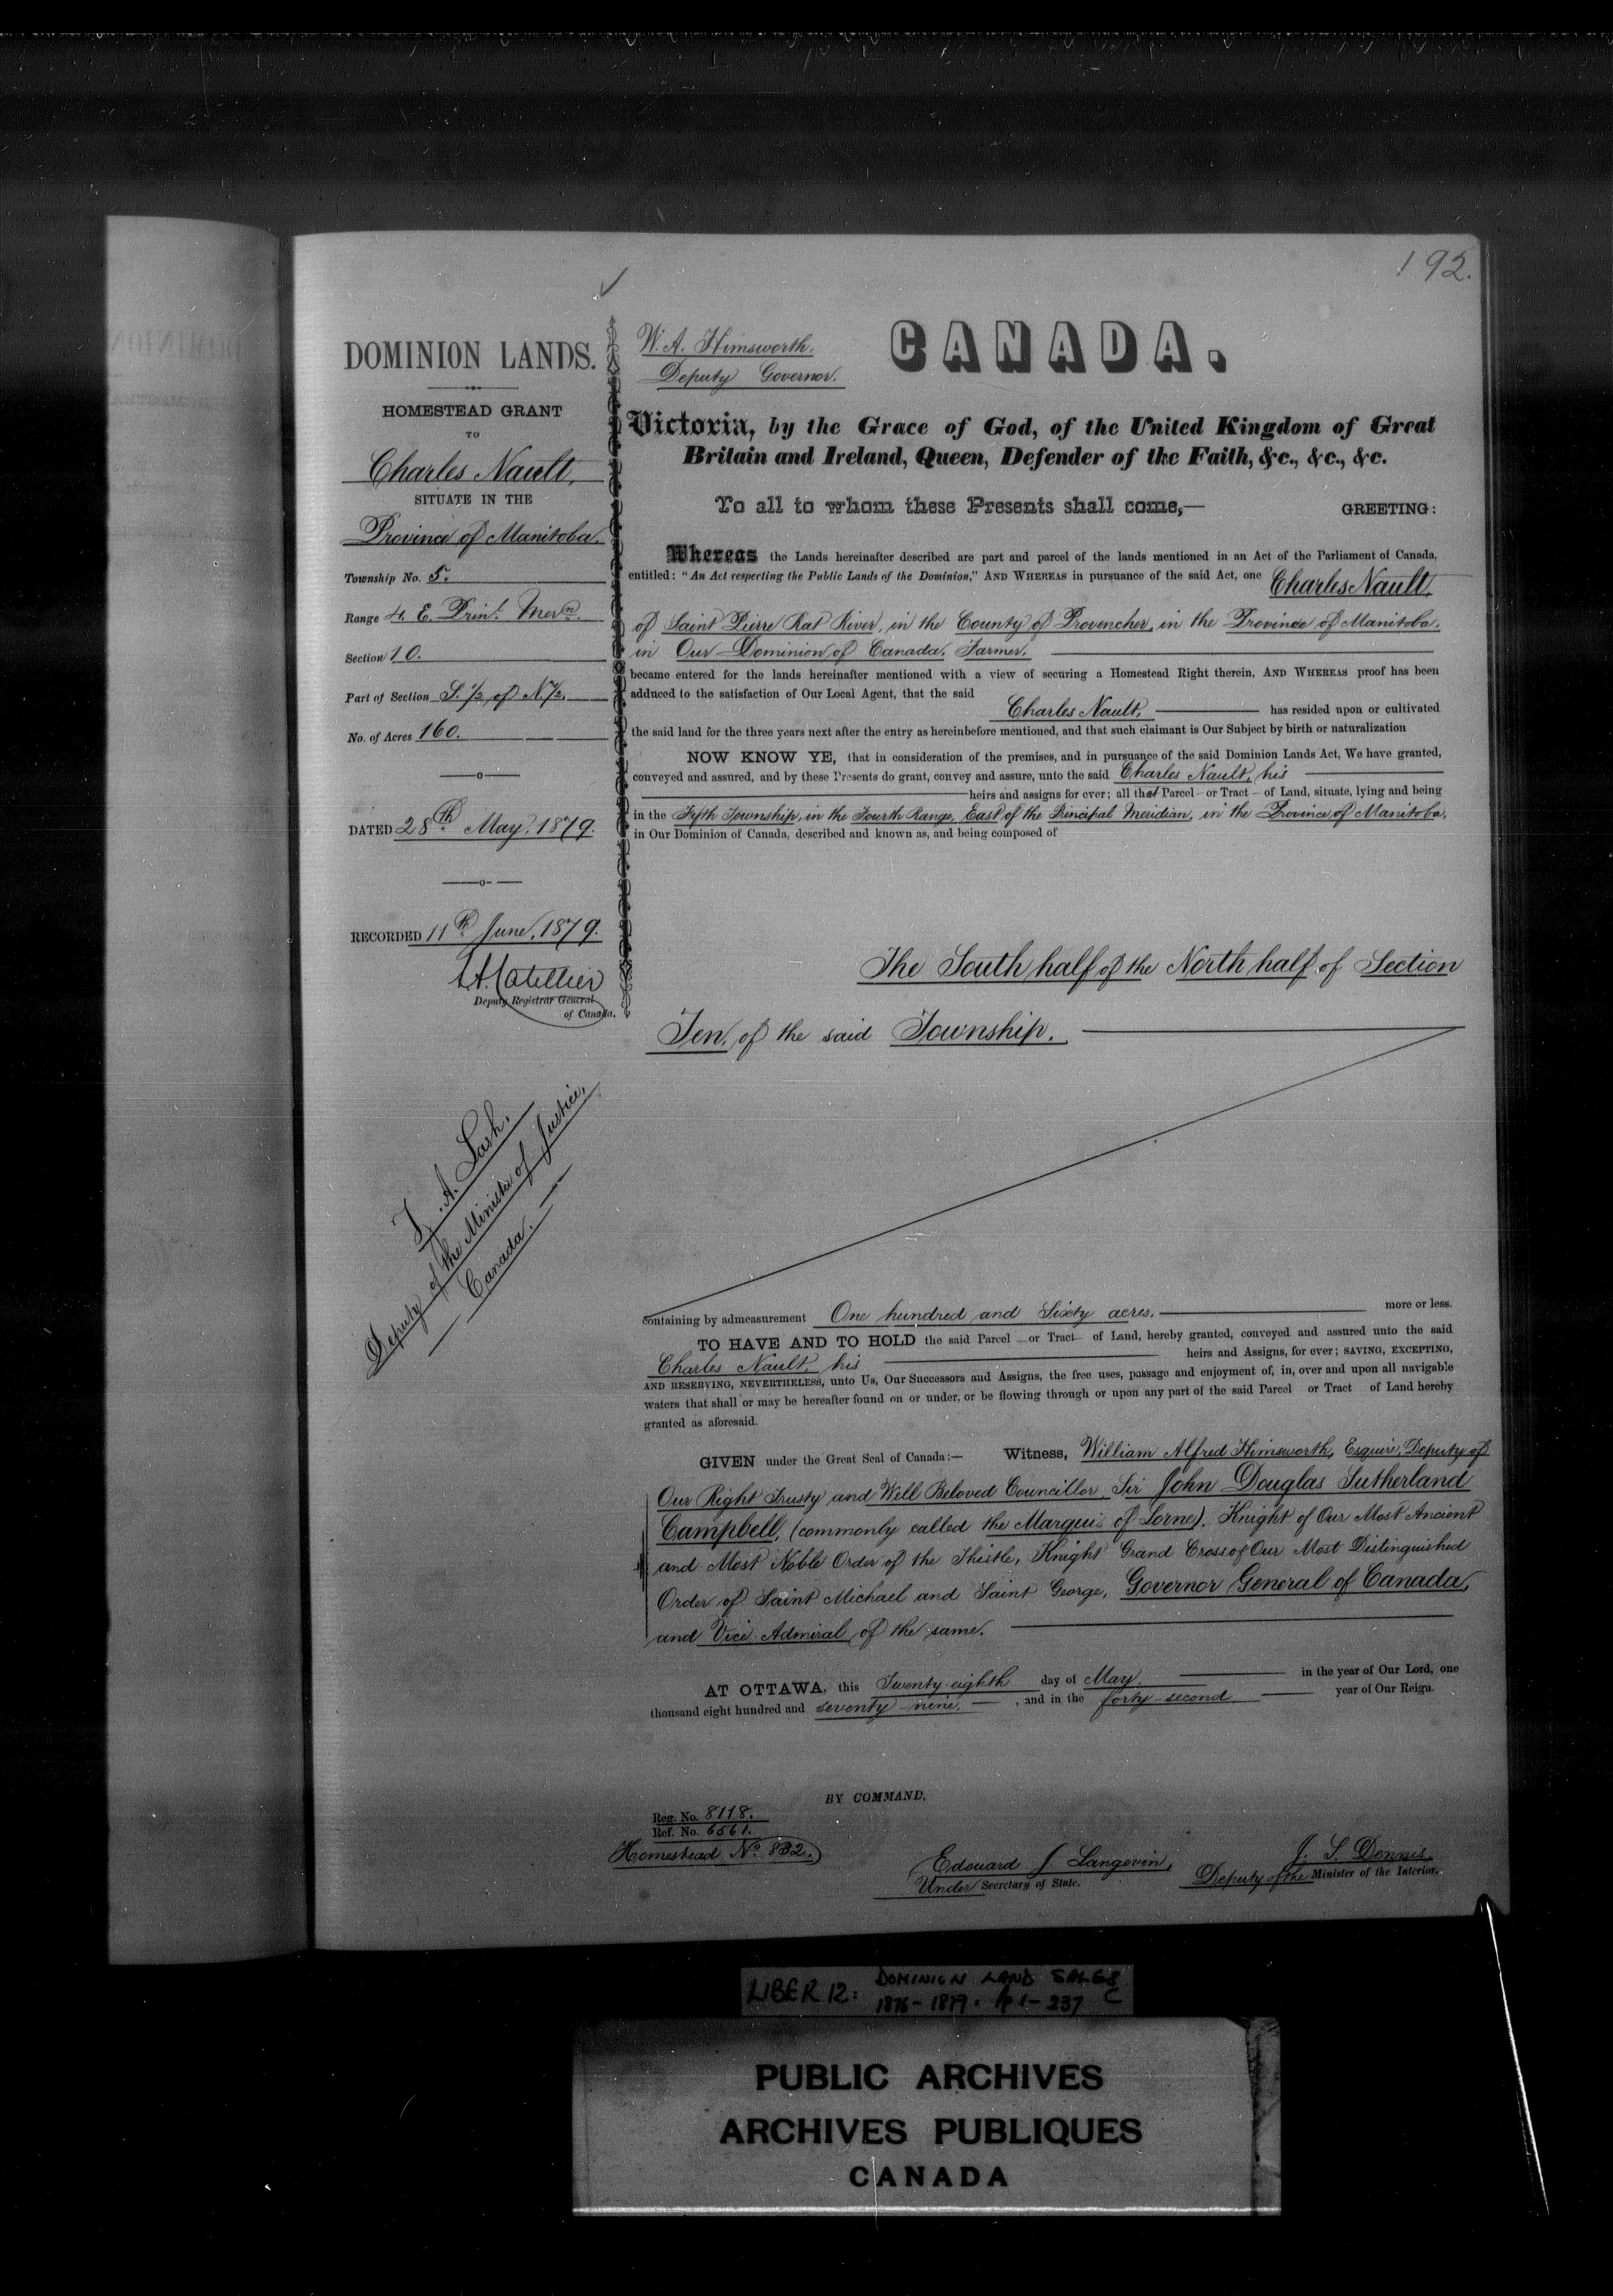 192.
DOMINION LANDS.
HOMESTEAD GRANT
TO
Charles Nault,
SITUATE IN THE
Province of Manitoba.
Township No. 5.
Range 4. E. Prinl. Mern.
Section 10.
Part of Section S. 1/2 of N. 1/2.
No. of Acres 160.
DATED 28th May, 1879.
RECORDED 11th June, 1879.
Deputy Registrar General
of Canada.
A. Lash.
Deputy of the Minister of Justice,
Canada.
W. A. Himsworth.
Deputy Governor.
CANADA.
Victoria, by the Grace of God, of the United Kingdom of Great
Britain and Ireland, Queen, Defender of the Faith, &c., &c., &c.
To all to whom these Presents shall come,— GREETING:
Whereas the Lands hereinafter described are part and parcel of the lands mentioned in an Act of the Parliament of Canada,
entitled: "An Act respecting the Public Lands of the Dominion," AND WHEREAS in pursuance of the said Act, one Charles Nault,
of Saint Pierre Rat River, in the County of Provencher, in the Province of Manitoba,
in Our Dominion of Canada, Farmer.
became entered for the lands hereinafter mentioned with a view of securing a Homestead Right therein, AND WHEREAS proof has been
adduced to the satisfaction of Our Local Agent, that the said
Charles Nault, has resided upon or cultivated
the said land for the three years next after the entry as hereinbefore mentioned, and that such claimant is Our Subject by birth or naturalization
NOW KNOW YE, that in consideration of the premises, and in pursuance of the said Dominion Lands Act, We have granted,
conveyed and assured, and by these Presents do grant, convey and assure, unto the said Charles Nault, his
heirs and assigns for ever; all that Parcel or Tract of Land, situate, lying and being
in the Fifth Township, in the Fourth Range, East of the Principal Meridian, in the Province of Manitoba,
in Our Dominion of Canada, described and known as, and being composed of
The South half of the North half of Section
Ten, of the said Township.
containing by admeasurement One hundred and Sixty acres. more or less.
TO HAVE AND TO HOLD the said Parcel or Tract of Land, hereby granted, conveyed and assured unto the said
Charles Nault, his heirs and Assigns, for ever; SAVING, EXCEPTING,
AND RESERVING, NEVERTHELESS, unto Us, Our Successors and Assigns, the free uses, passage and enjoyment of, in, over and upon all navigable
waters that shall or may be hereafter found on or under, or be flowing through or upon any part of the said Parcel or Tract of Land hereby
granted as aforesaid.
GIVEN under the Great Seal of Canada:— Witness, William Alfred Himsworth, Esquire, Deputy of
Our Right Trusty and Well Beloved Councillor, Sir John Douglas Sutherland
Campbell, (commonly called the Marquis of Lorne). Knight of Our Most Ancient
and Most Noble Order of the Thistle, Knight Grand Cross of Our Most Distinguished
Order of Saint Michael and Saint George, Governor General of Canada,
and Vice-Admiral of the same.
AT OTTAWA, this Twenty-eighth day of May. in the year of Our Lord, one
thousand eight hundred and seventy-nine, , and in the forty-second year of Our Reign.
BY COMMAND,
Reg. No. 8118.
Ref. No. 6561.
Homestead No. 832.
Edouard J. Langevin,
Under Secretary of State.
J. S. Dennis,
Deputy of the Minister of the Interior.
LIBER 12: DOMINION LAND SALES
1876-1879. pp 1-237 C
PUBLIC ARCHIVES
ARCHIVES PUBLIQUES
CANADA